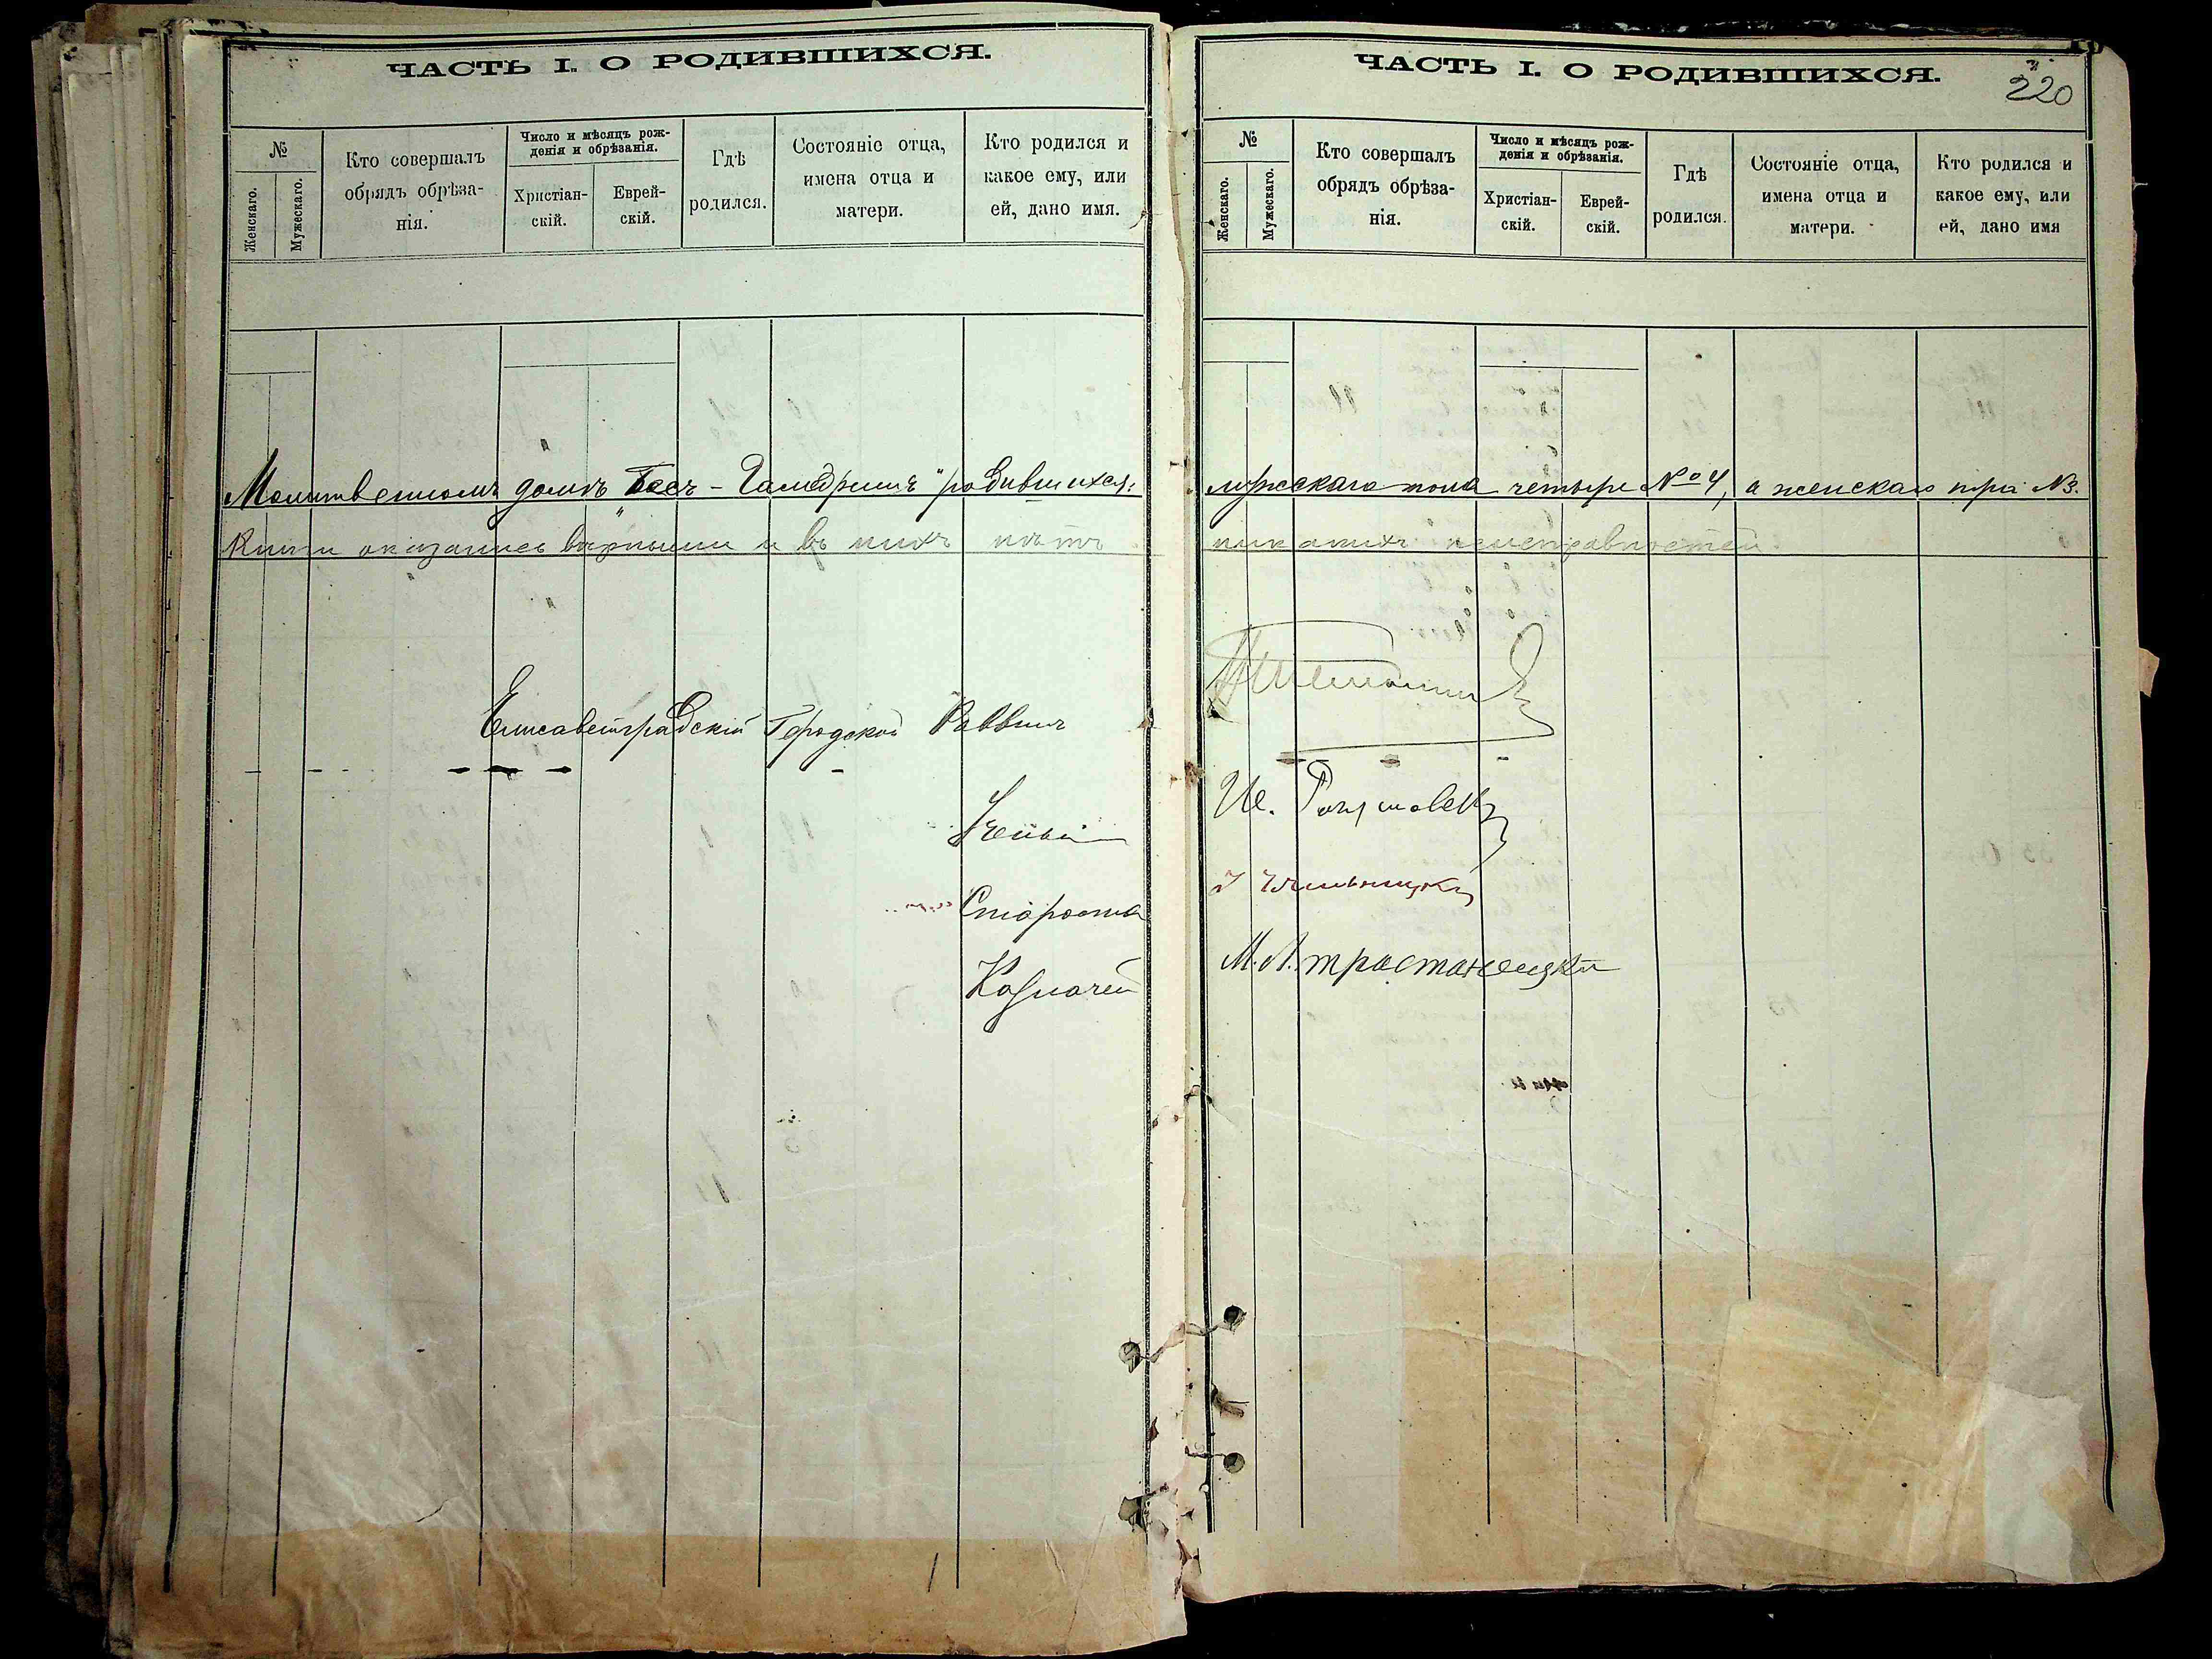 ЧАСТЬ I. О РОДИВШИХСЯ.
№
Женскаго.
Мужескаго.
Кто совершалъ
обрядъ обрѣза-
нія.
Число и мѣсяцъ рож-
денія и обрѣзанія.
Христіан-
скій.
Еврей-
скій.
Гдѣ
родился.
Состояніе отца,
имена отца и
матери.
Кто родился и
какое ему, или
ей, дано имя.
Молитвенномъ домѣ "Бесъ-Гамедришъ" родившихся:
Книги оказались вѣрными и въ нихъ нѣтъ
Елисаветградскій Городской Раввинъ
Ученый
Староста
Казначей
ЧАСТЬ I. О РОДИВШИХСЯ.
220
№
Женскаго.
Мужескаго.
Кто совершалъ
обрядъ обрѣза-
нія.
Число и мѣсяцъ рож-
денія и обрѣзанія.
Христіан-
скій.
Еврей-
скій.
Гдѣ
родился.
Состояніе отца,
имена отца и
матери.
Кто родился и
какое ему, или
ей, дано имя
мужескаго пола четыре №4, а женскаго три №3.
никакихъ неисправностей.
М. Л. трастонецкій